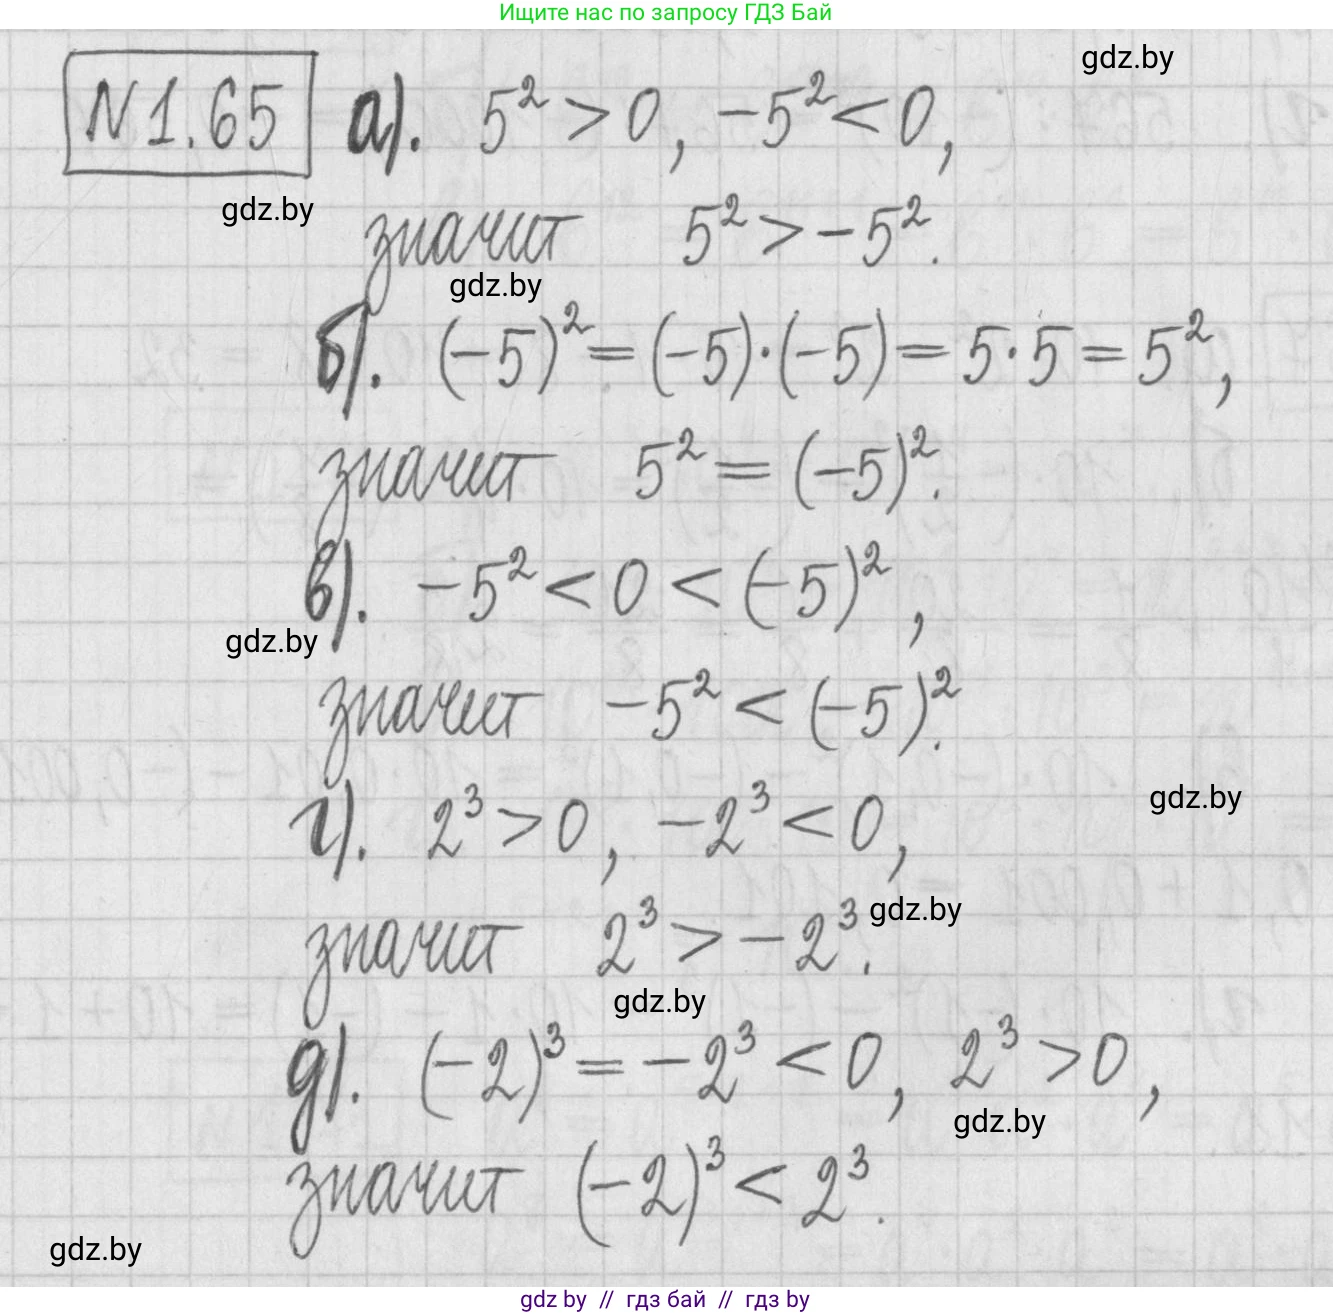 Ищите нас по запросу ГДЗ Бай
gdz.by
N1.65 а). 5² > 0, -5² < 0,
gdz.by
значит 5² > -5².
gdz.by
б). (-5)² = (-5)·(-5) = 5·5 = 5²,
значит 5² = (-5)².
в). -5² < 0 < (-5)²,
gdz.by
значит -5² < (-5)².
gdz.by
г). 2³ > 0, -2³ < 0,
gdz.by
значит 2³ > -2³.
gdz.by
д). (-2)³ = -2³ < 0, 2³ > 0,
gdz.by
значит (-2)³ < 2³.
gdz.by
gdz by // гдз бай // гдз by